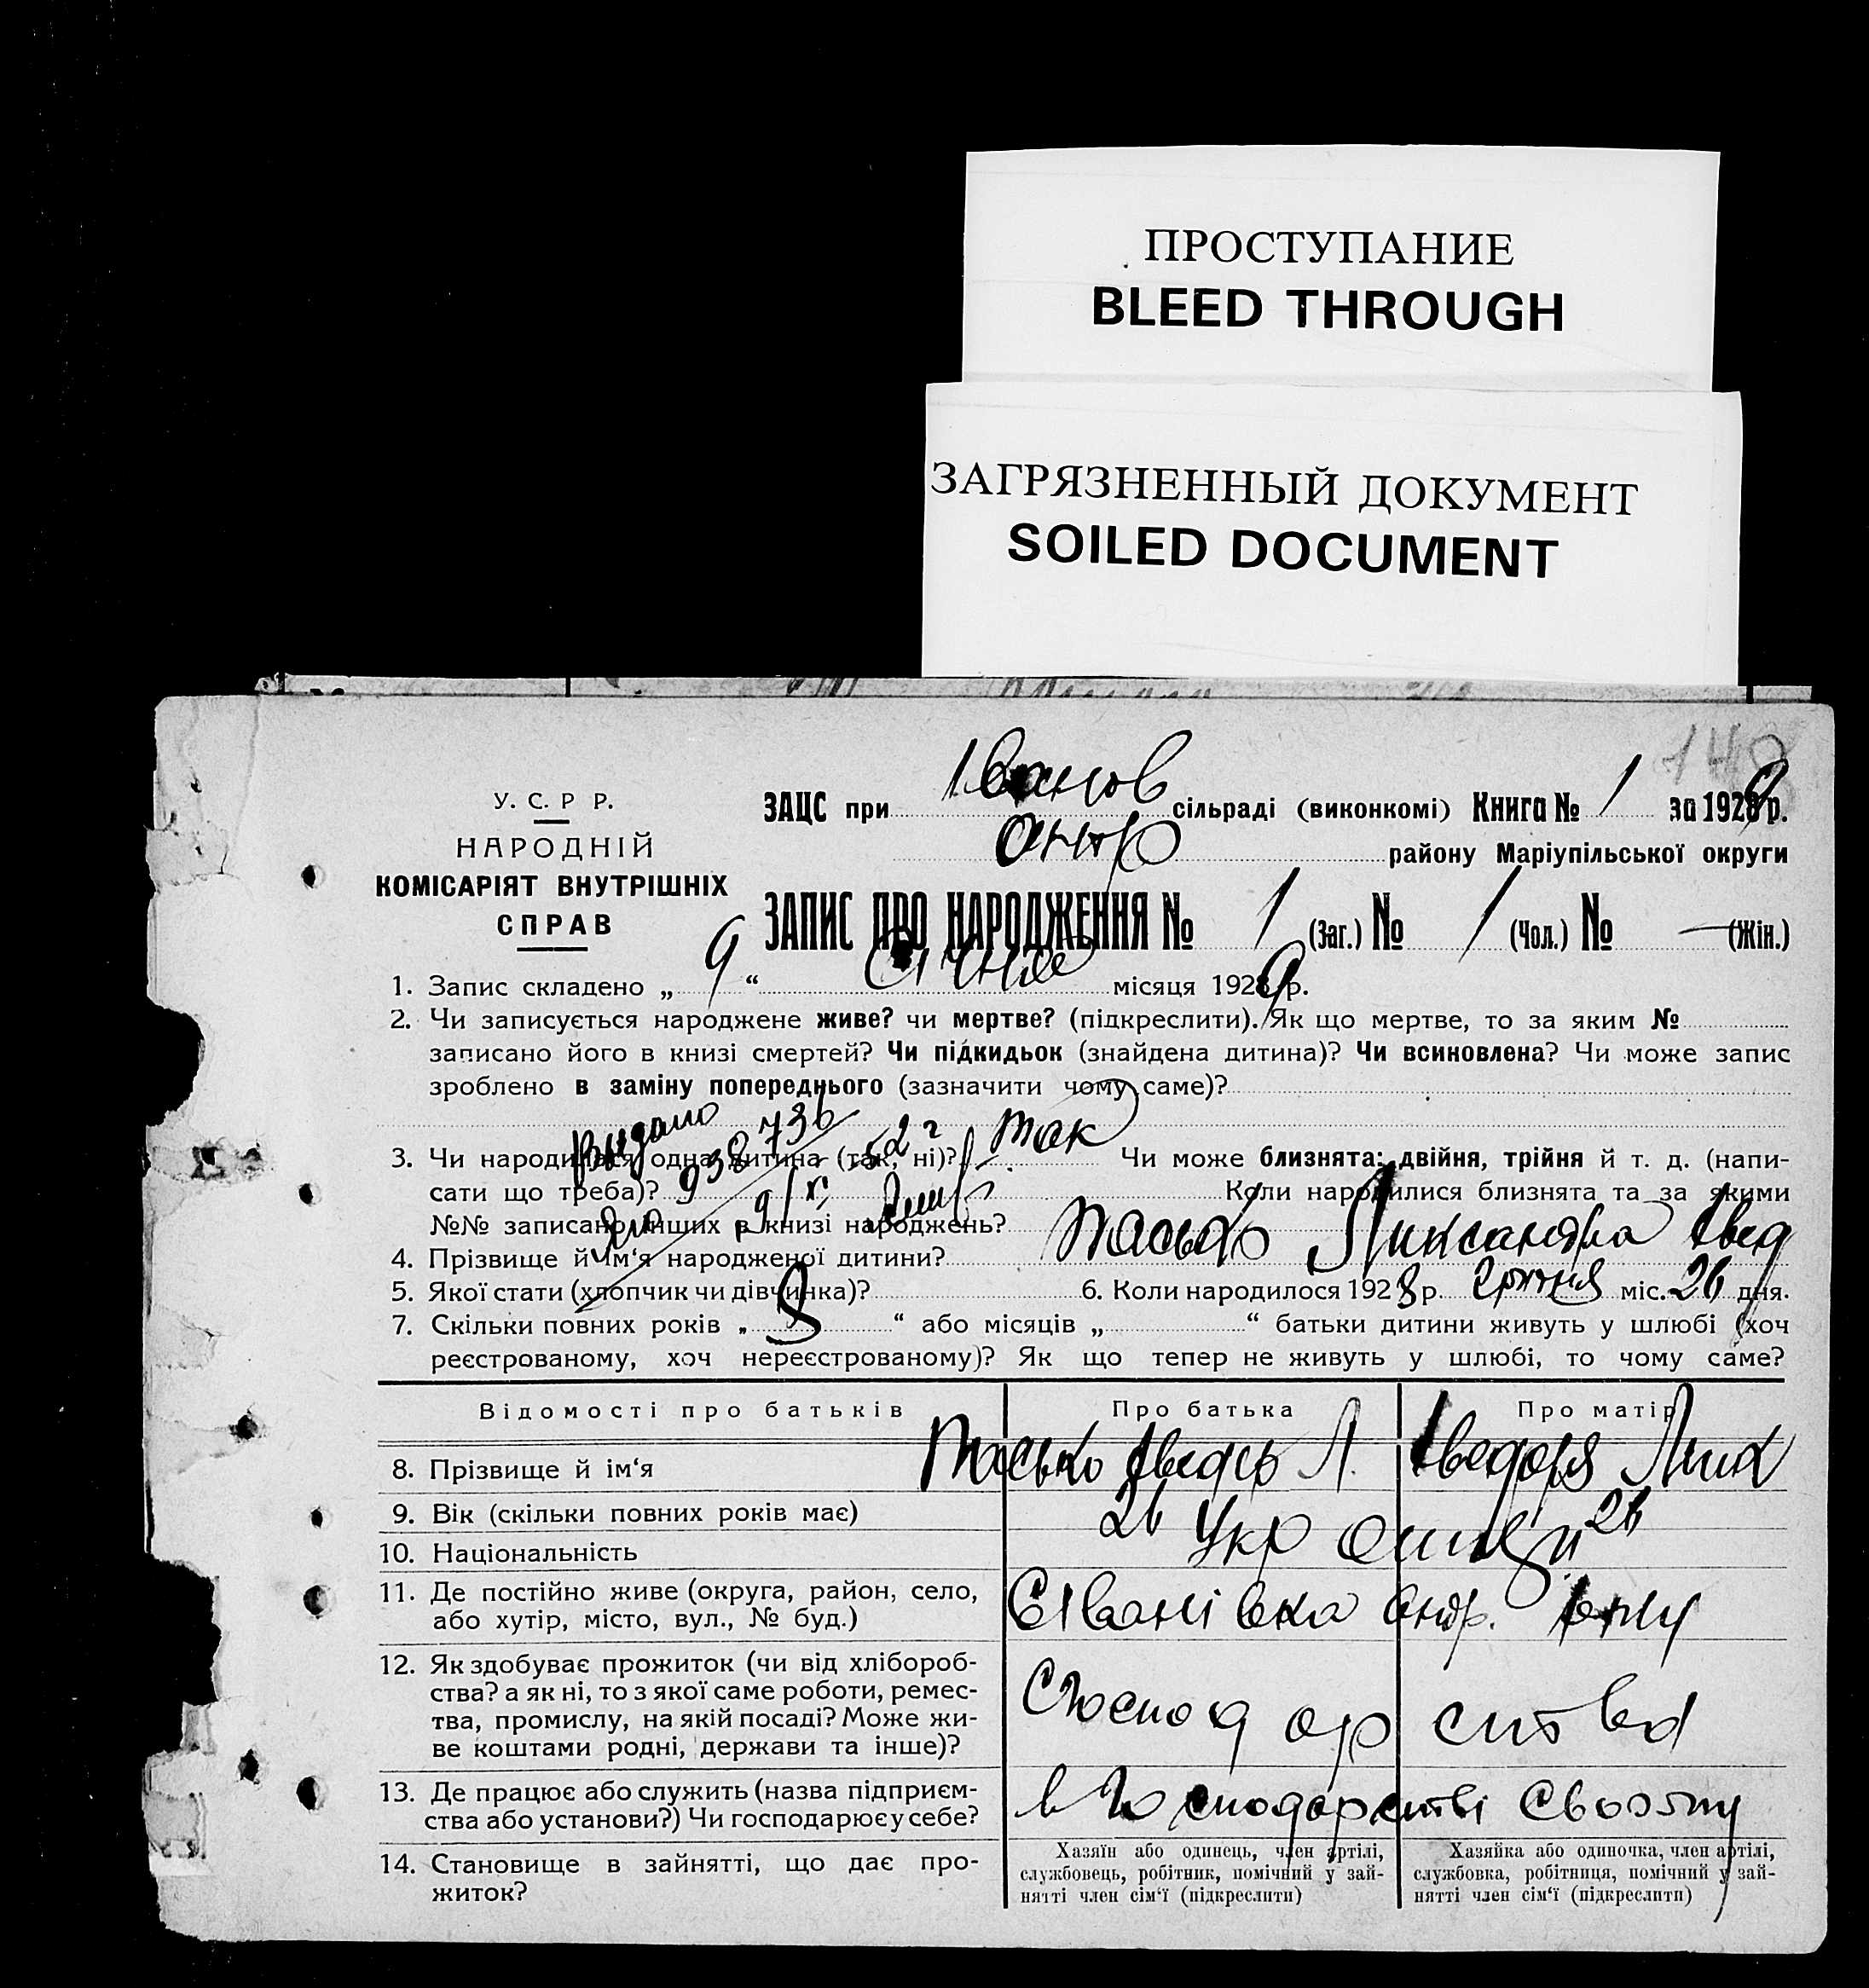 ПРОСТУПАНИЕ
BLEED THROUGH
ЗАГРЯЗНЕННЫЙ ДОКУМЕНТ
SOILED DOCUMENT
149
У. С. Р Р.
НАРОДНІЙ
КОМІСАРІЯТ ВНУТРІШНІХ
СПРАВ
ЗАЦС при Іванов сільраді (виконкомі) Книга № 1 за 1929 р.
Андр району Маріупільської округи
ЗАПИС ПРО НАРОДЖЕННЯ № 1 (Заг.) № 1 (Чол.) № — (Жін.)
1. Запис складено „ 9 “ Січня місяця 1929 р.
2. Чи записується народжене живе? чи мертве? (підкреслити). Як що мертве, то за яким №
записано його в книзі смертей? Чи підкидьок (знайдена дитина)? Чи всиновлена? Чи може запис
зроблено в заміну попереднього (зазначити чому саме)?
Видано
938736
3. Чи народилася одна дитина (так, ні)? так Чи може близнята: двійня, трійня й т. д. (напи-
сати що треба)? Коли народилися близнята та за якими
№№ записано інших в книзі народжень?
4. Прізвище й ім‘я народженої дитини? Пасько Ликсандра Авед
5. Якої стати (хлопчик чи дівчинка)? 6. Коли народилося 1928 р. грудня міс. 26 дня.
7. Скільки повних років „ 8 “ або місяців „ “ батьки дитини живуть у шлюбі (хоч
реєстрованому, хоч нереєстрованому)? Як що тепер не живуть у шлюбі, то чому саме?
Відомості про батьків Про батька Про матір
8. Прізвище й ім‘я Пасько
9. Вік (скільки повних років має) 26 26
10. Національність Укр
11. Де постійно живе (округа, район, село,
або хутір, місто, вул., № буд.)
С Іванівка Андр.
12. Як здобуває прожиток (чи від хлібороб-
ства? а як ні, то з якої саме роботи, ремес-
тва, промислу, на якій посаді? Може жи-
ве коштами родні, держави та інше)?
Господарства
13. Де працює або служить (назва підприєм-
ства або установи?) Чи господарює у себе?
в господарстві Своэму
14. Становище в зайнятті, що дає про-
житок?
Хазяїн або одинець, член артілі,
службовець, робітник, помічний у зай-
нятті член сім‘ї (підкреслити)
Хазяйка або одиночка, член артілі,
службовка, робітниця, помічний у зай-
нятті член сім‘ї (підкреслити)